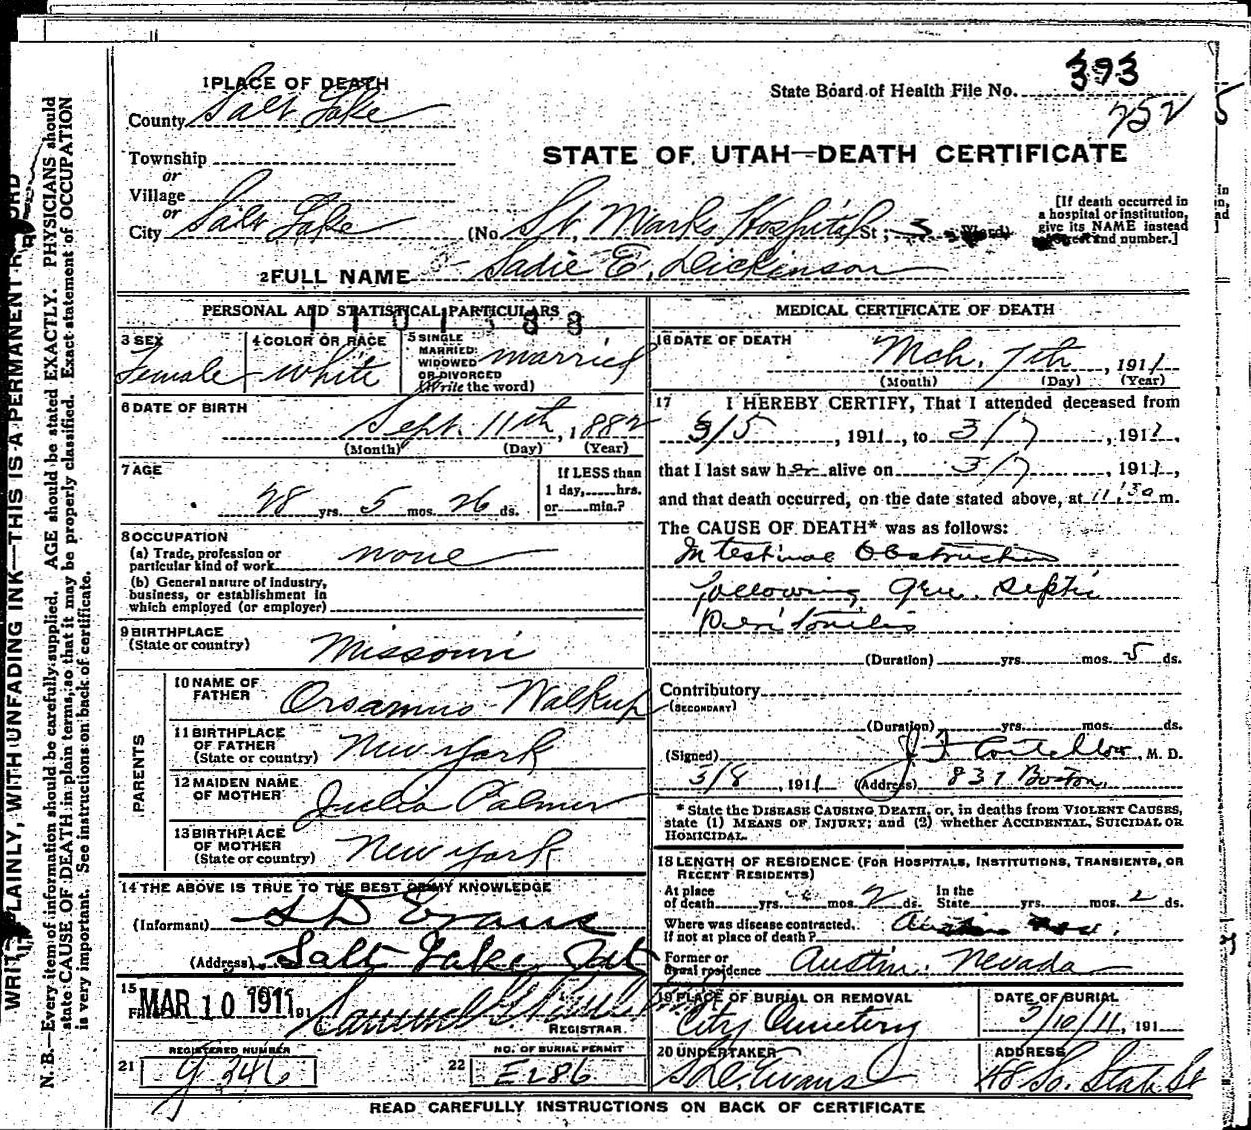 1 PLACE OF DEATH
County Salt Lake
Township
or
Village
or
City Salt Lake
State Board of Health File No. 393
252
STATE OF UTAH—DEATH CERTIFICATE
(No. St. Marks Hospital St.; 3 Ward)
[If death occurred in
a hospital or institution,
give its NAME instead
of street and number.]
2 FULL NAME Sadie E. Dickinson
PERSONAL AND STATISTICAL PARTICULARS
3 SEX
Female
4 COLOR OR RACE
White
5 SINGLE
MARRIED
WIDOWED
OR DIVORCED
(Write the word)
married
6 DATE OF BIRTH
Sept. 11th, 1882
(Month) (Day) (Year)
7 AGE
28 yrs. 5 mos. 26 ds.
If LESS than
1 day, hrs.
or min.?
8 OCCUPATION
(a) Trade, profession or
particular kind of work none
(b) General nature of industry,
business, or establishment in
which employed (or employer)
9 BIRTHPLACE
(State or country) Missouri
PARENTS
10 NAME OF
FATHER Orsamus Walkup
11 BIRTHPLACE
OF FATHER
(State or country) New York
12 MAIDEN NAME
OF MOTHER Julia Palmer
13 BIRTHPLACE
OF MOTHER
(State or country) New York
14 THE ABOVE IS TRUE TO THE BEST OF MY KNOWLEDGE
(Informant) S D Evans
(Address) Salt Lake
15
MAR 10 1911 191
REGISTRAR.
21 REGISTERED NUMBER
246
22 NO. OF BURIAL PERMIT
E286
MEDICAL CERTIFICATE OF DEATH
16 DATE OF DEATH
Mch. 7th, 1911
(Month) (Day) (Year)
17 I HEREBY CERTIFY, That I attended deceased from
3/5, 1911, to 3/7, 1911,
that I last saw her alive on 3/7, 1911,
and that death occurred, on the date stated above, at 11:30 m.
The CAUSE OF DEATH* was as follows:
Intestinal Obstruction
following Gen. Septic
Peritonitis
(Duration) yrs. mos. 5 ds.
Contributory
(SECONDARY)
(Duration) yrs. mos. ds.
(Signed) J F Critchlow, M. D.
3/8, 1911 (Address) 837 Boston
* State the DISEASE CAUSING DEATH, or, in deaths from VIOLENT CAUSES,
state (1) MEANS OF INJURY; and (2) whether ACCIDENTAL, SUICIDAL OR
HOMICIDAL.
18 LENGTH OF RESIDENCE (FOR HOSPITALS, INSTITUTIONS, TRANSIENTS, OR
RECENT RESIDENTS)
At place
of death yrs. mos. 2 ds.
In the
State yrs. mos. 2 ds.
Where was disease contracted,
if not at place of death? Austin Nev.
Former or
usual residence Austin, Nevada
19 PLACE OF BURIAL OR REMOVAL
City Cemetery
DATE OF BURIAL
3/10/11, 191
20 UNDERTAKER
S. D. Evans
ADDRESS
48 So. State St
READ CAREFULLY INSTRUCTIONS ON BACK OF CERTIFICATE
WRITE PLAINLY, WITH UNFADING INK—THIS IS A PERMANENT RECORD
N. B.—Every item of information should be carefully supplied. AGE should be stated EXACTLY. PHYSICIANS should
state CAUSE OF DEATH in plain terms, so that it may be properly classified. Exact statement of OCCUPATION
is very important. See instructions on back of certificate.